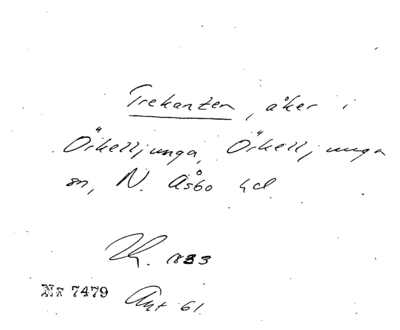 Trekanten, åker i
Örkelljunga, Örkelljunga
sn, N. Åsbo hd
1833
Nr 7479 Akt 61.